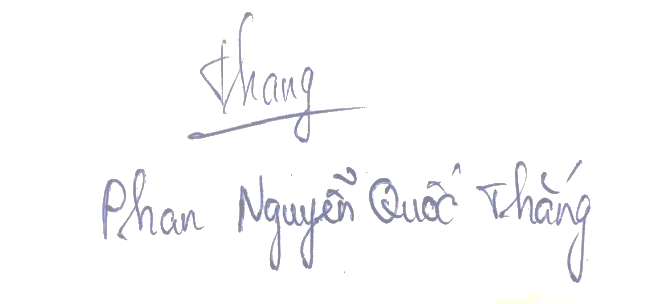 Thang
Phan Nguyễn Quốc Thắng